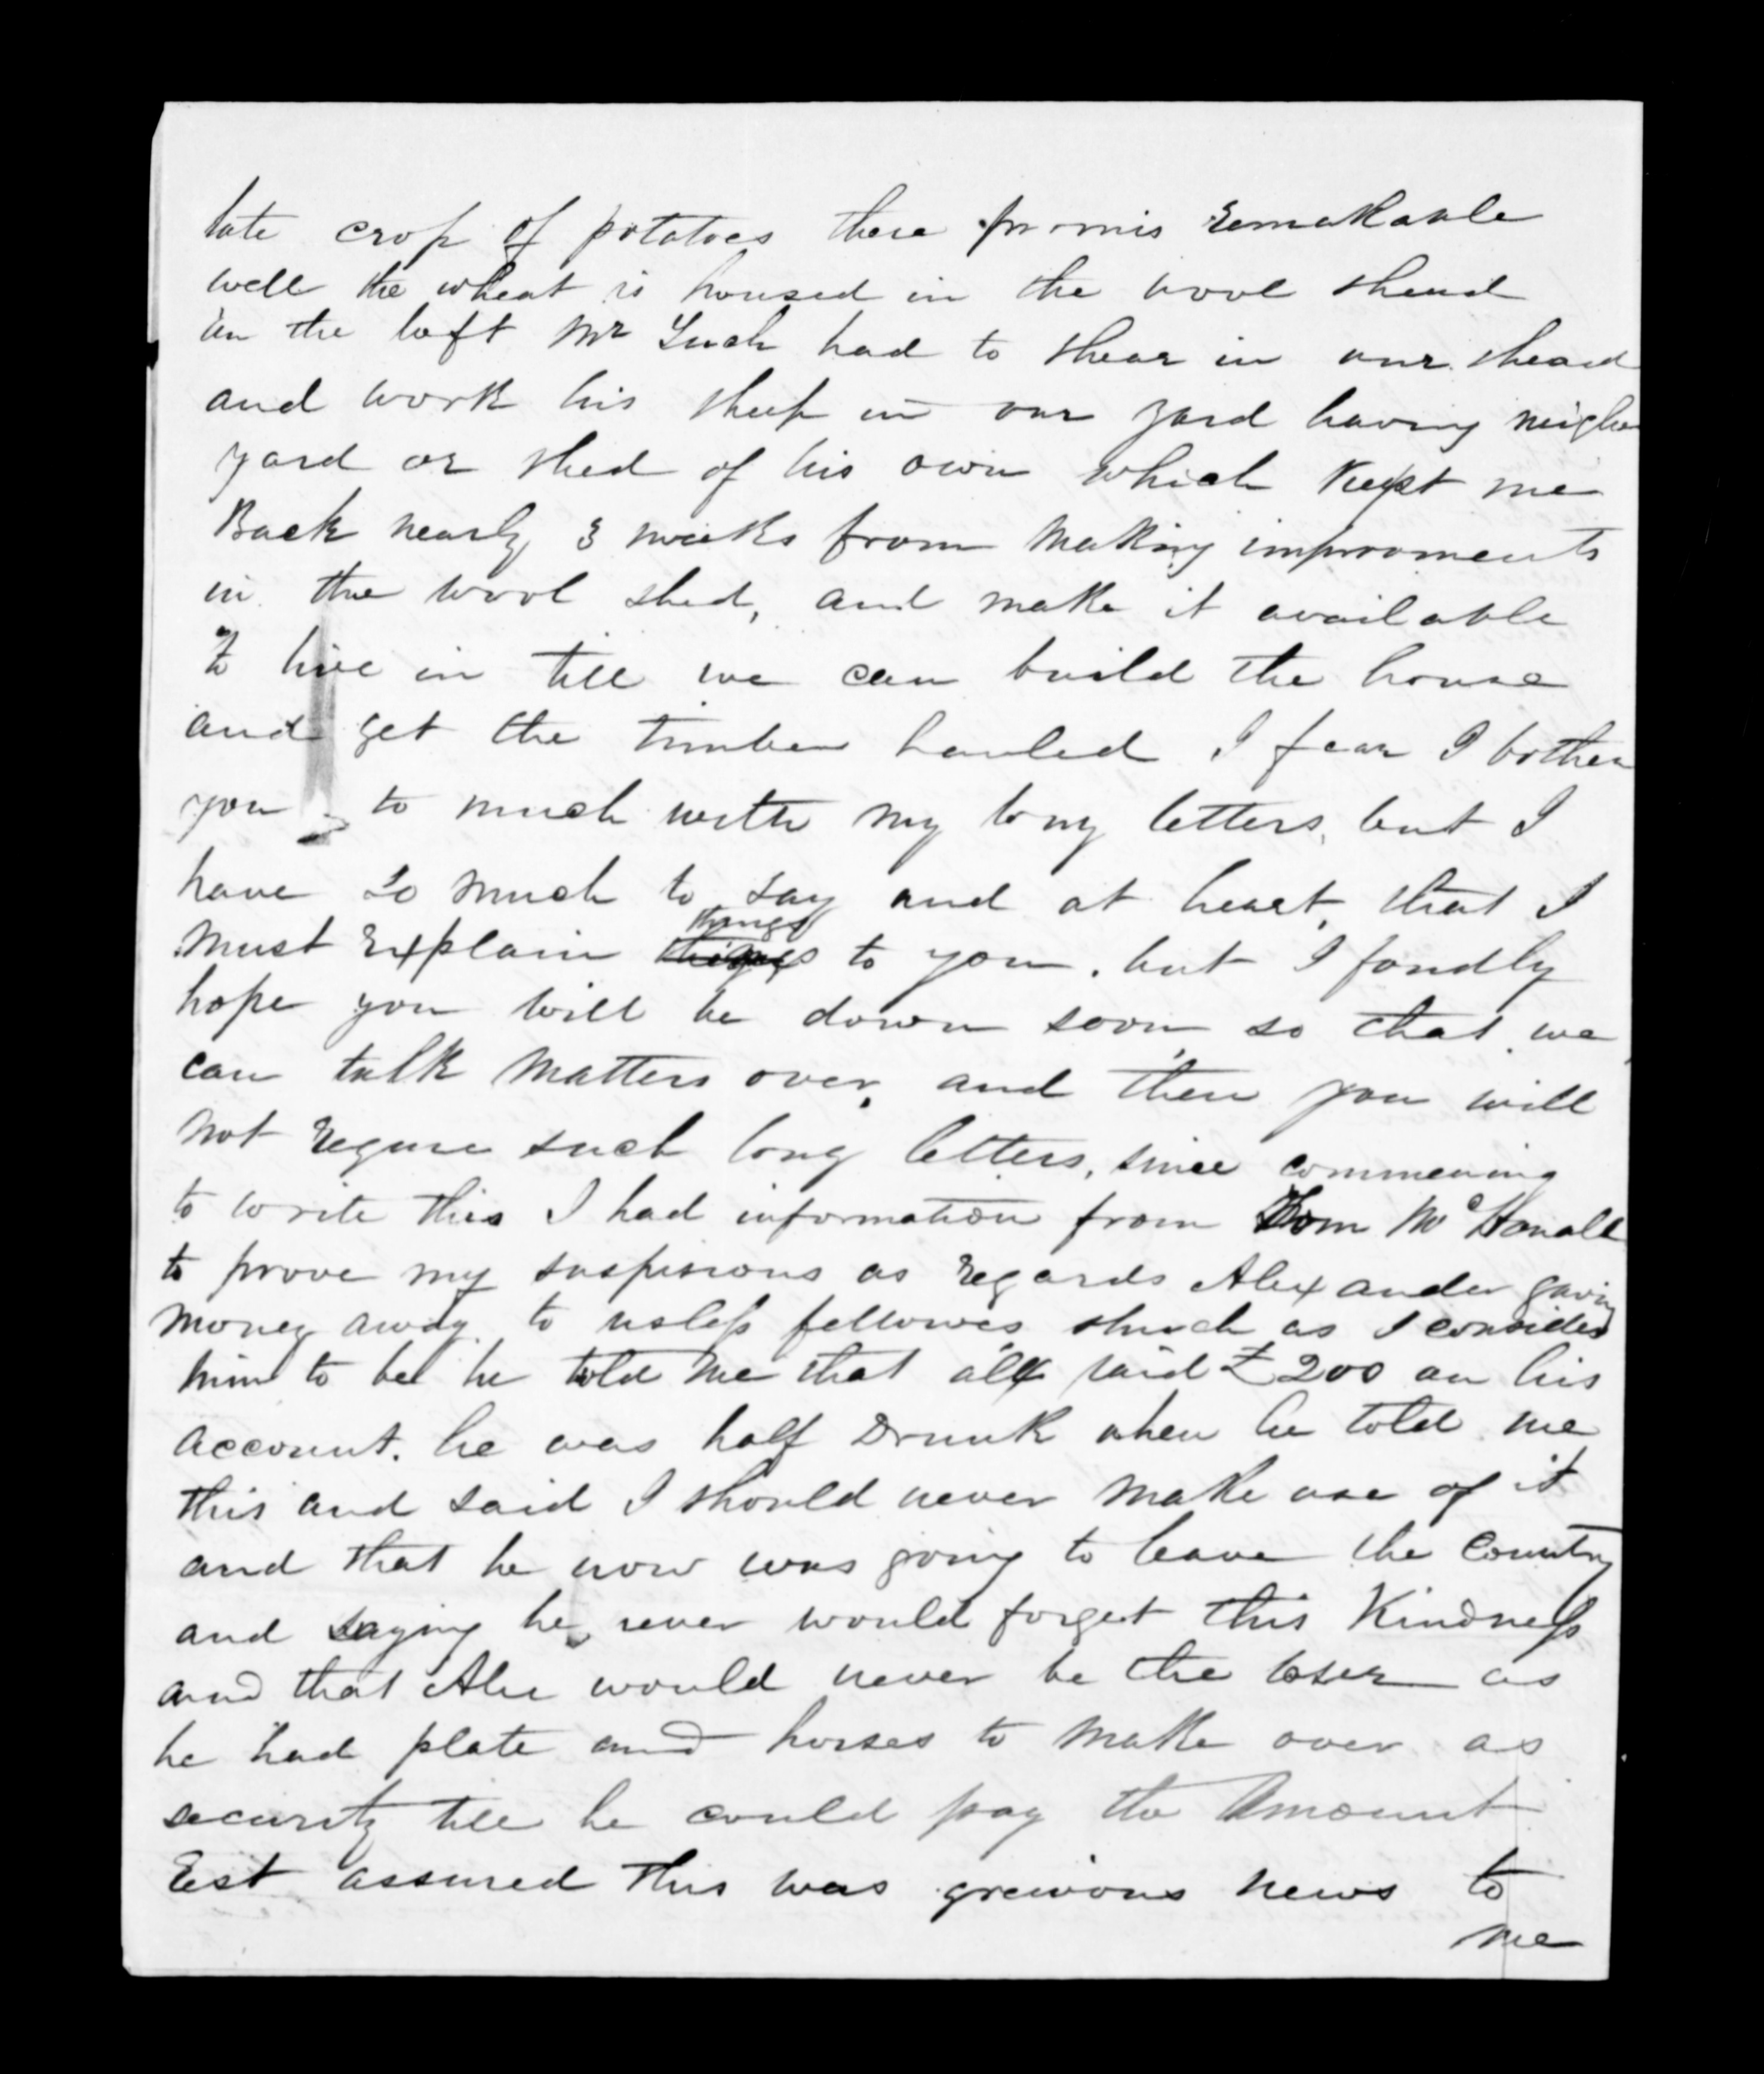 late crop of potatoes these promis remakable
well the wheat is housed in the wool shead
in the loft Mr had to shear in our shead
and work his sheep in our yard having neigher
yard or shed of his own which kept me
Back nearly 3 weeks from making improoments
in the wool shed, and make it available
to live in till we can build the house
and get the timber hauled I fear I bother
you to much with my long letters, but I
have so much to say and at heart, that I
must explain things things to you. but I fondly
hope you will be down soon, so that we
can talk matters over, and then you will
not requre such long letters, since commening
to write this I had information from Tom Mc Donall
to prove my suspisions as regards Alexander gaving
money away to usless fellowes shuch as I consider
him to be he told me that alex paid £200 on his
account. he was half Drunk when he told me
this and said I should never make use of it
and that he now was going to leave the country
and saying he never would forget this Kindness
and that Alic would never be the loser as
he had plate and horses to make over as
security till he could pay the Amount
Rest assured this was greivous news to
me